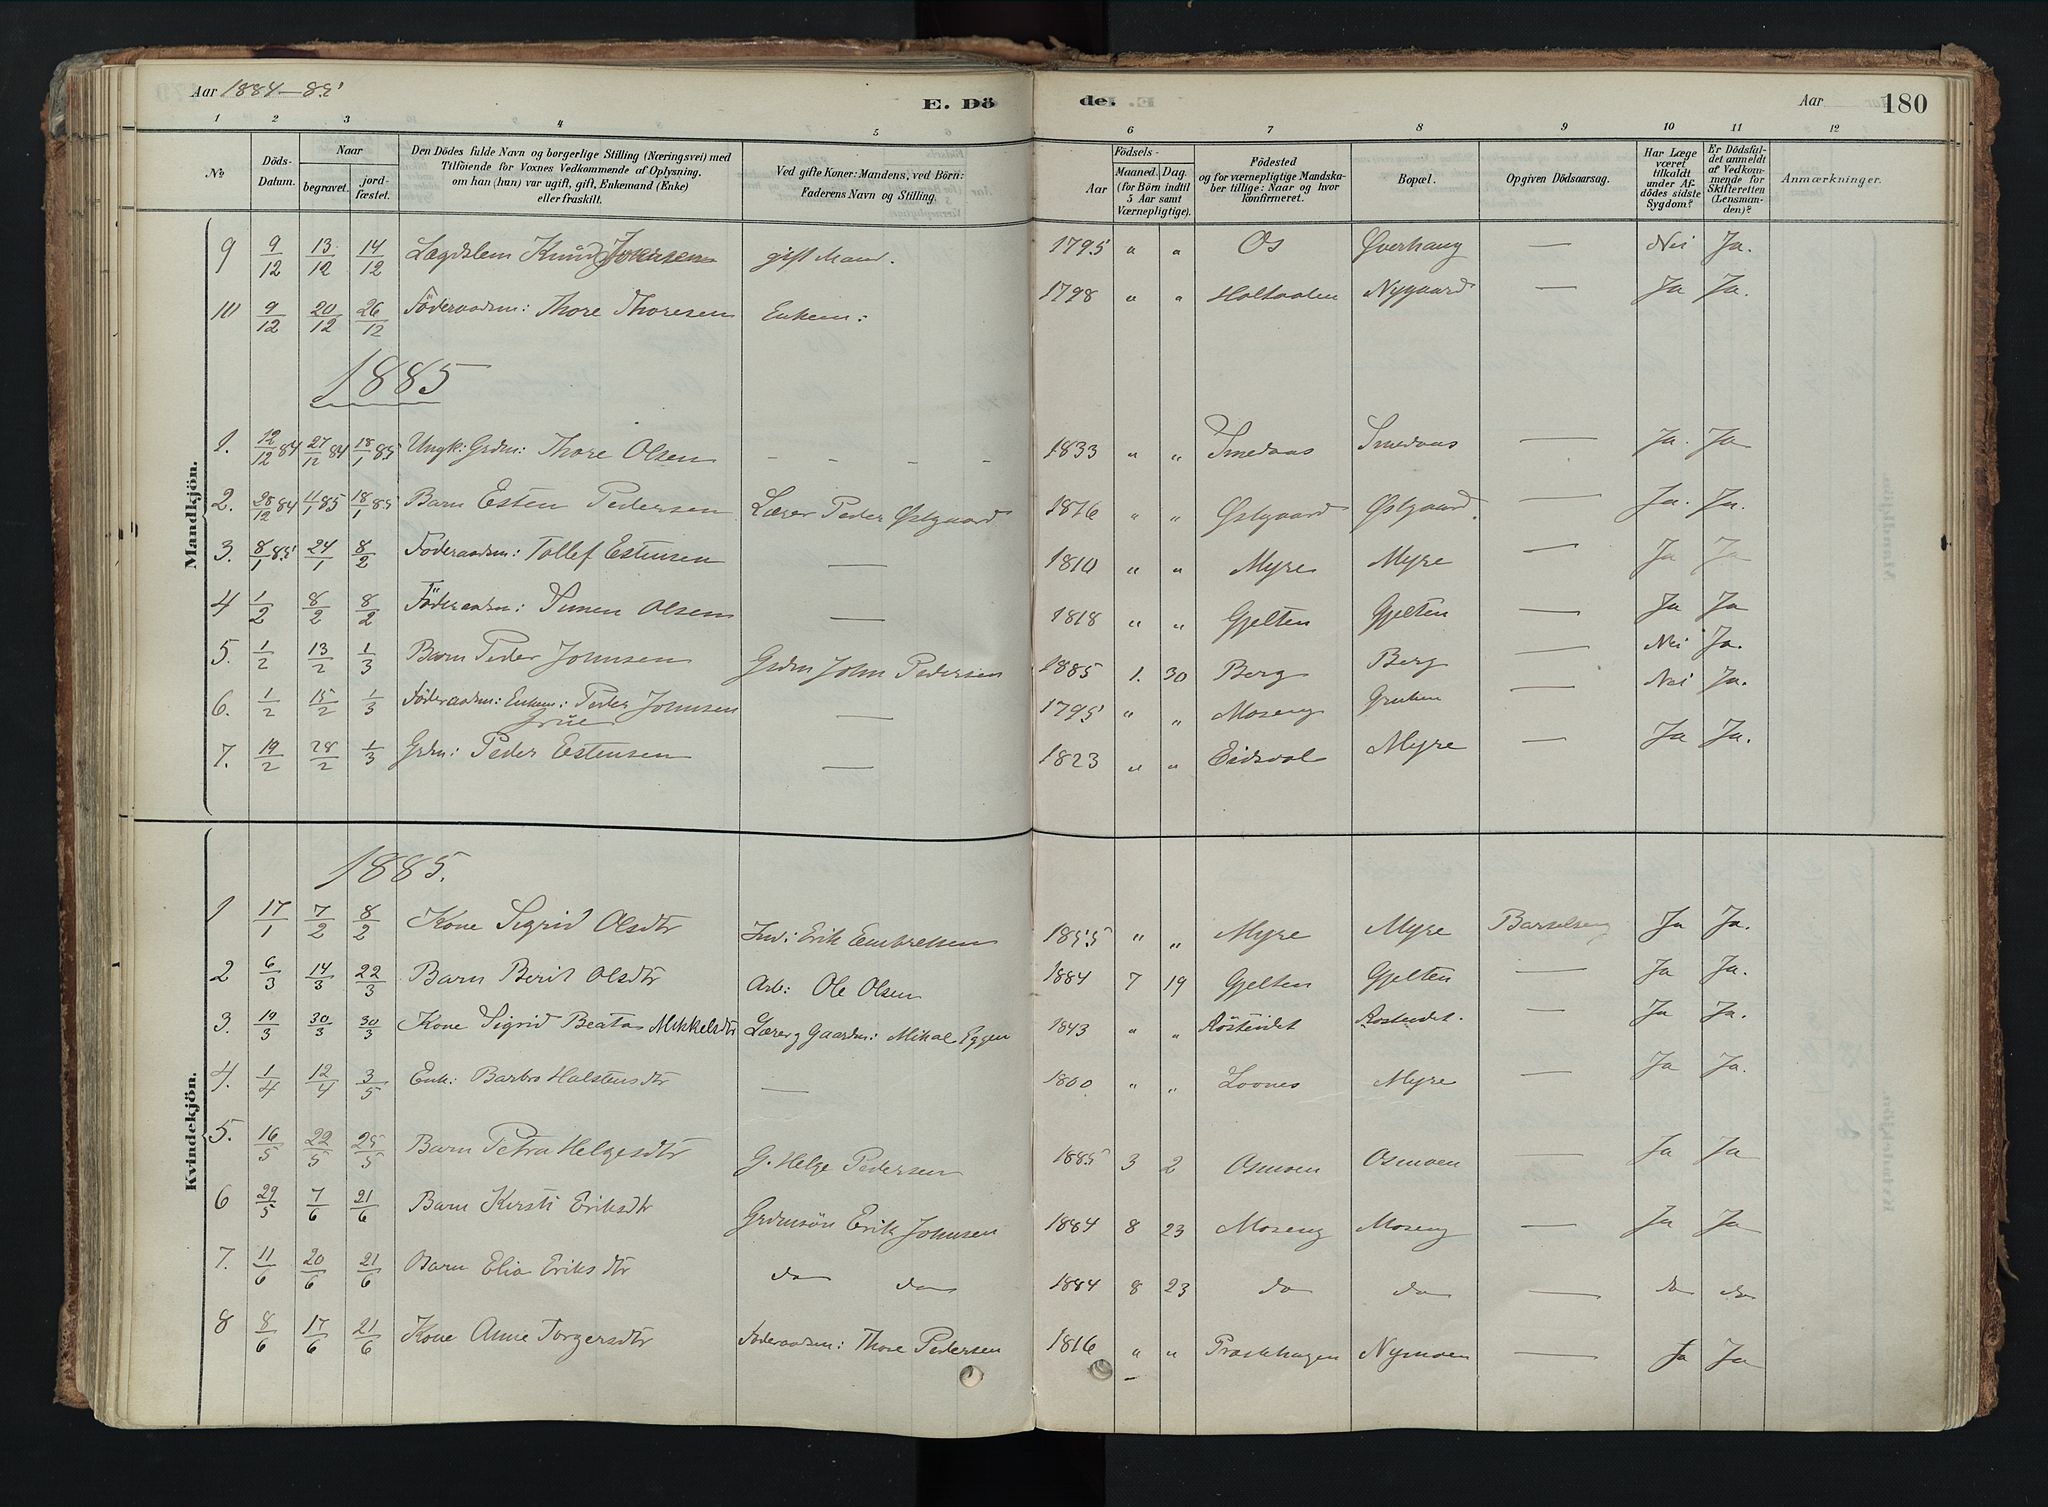 Aar 1884-85
E. Dö
de.
Aar
180
1 2 3 4 5 6 7 8 9 10 11 12
No
Döds-Datum.
Naar
begravet.
jord-fæstet.
Den Dödes fulde Navn og borgerlige Stilling (Næringsvei) med
Tilföiende for Voxnes Vedkommende af Oplysning,
om han (hun) var ugift, gift, Enkemand (Enke)
eller fraskilt.
Ved gifte Koner: Mandens, ved Börn:
Faderens Navn og Stilling.
Födsels-
Aar
Maaned. Dag.
(for Börn indtil
5 Aar samt
Værnepligtige).
Födested
og for værnepligtige Mandska-
ber tillige: Naar og hvor
konfirmeret.
Bopæl.
Opgiven Dödsaarsag.
Har Læge
været
tilkaldt
under Af-
dödes sidste
Sygdom?
Er Dödsfal-
det anmeldt
af Vedkom-
mende for
Skifteretten
(Lensman-
den)?
Anmærkninger.
Mandkjön.
9 9/12 13/12 14/12 Lægdslem Knud Joensen gift Mand. 1795 " " Os Øverhaug — Nei Ja.
10 9/12 20/12 26/12 Föderaadsm: Thore Thoresen Enkem: 1798 " " Holtaalen Nygaard — Ja Ja.
1885
1. 12/12 84 27/12 84 18/1 85 Ungk: Grdm: Thore Olsen - - - - 1833 " " Smedaas Smedaas — Ja. Ja
2. 28/12 84 4/1 85 18/1 85 Barn Esten Pedersen Lærer Peder Østgaard 1876 " " Østgaard Østgaard. — Ja. Ja.
3. 8/1 85 24/1 8/2 Föderaadsm: Tollef Estensen — 1810 " " Myre Myre — Ja Ja
4 1/2 8/2 8/2 Föderaadsm: Simen Olsen — 1818 " " Gjelten Gjelten — Ja Ja
5. 1/2 13/2 1/3 Barn Peder Johnsen Grdm John Pedersen 1885 1. 30 Berg Berg — Nei Ja.
6. 1/2 15/2 1/3 Föderaadsm: Enkem: Peder Johnsen
Grue — 1795 " " Moseng Gruken — Nei Ja.
7. 19/2 28/2 1/3 Grdm: Peder Estensen — 1823 " " Eidsvol Myre — Ja Ja.
Kvindekjön.
1885.
1 17/1 7/2 8/2 Kone Sigrid Olsdtr Ind: Erik Embretsen 1855 " " Myre Myre Barselseng Ja Ja.
2 6/3 14/3 22/3 Barn Berit Olsdtr Arb: Ole Olsen 1884 7 19 Gjelten Gjelten — Ja Ja.
3. 19/3 30/3 30/3 Kone Sigrid Beata Mikkelsdtr Lærer g Gaardm: Mikal Eggen 1843 " " Röstendet Röstendet. — Ja Ja.
4. 1/4 12/4 3/5 Enk: Barbro Halstensdtr — 1800 " " Loones Myre — Ja Ja.
5. 16/5 22/5 25/5 Barn Petra Helgesdtr G. Helge Pedersen 1885 3 2 Osmoen Osmoen — Ja Ja
6 29/5 7/6 21/6 Barn Kirsti Eriksdtr Grdmsön Erik Johnsen 1884 8 23 Moseng Moseng — Ja Ja
7. 11/6 20/6 21/6 Barn Elia Eriksdtr do do 1884 8 23 do do — do do
8 8/6 17/6 21/6 Kone Anne Torgersdtr Föderaadsm: Thore Pedersen 1816 " " Præsthagen Nymoen — Ja Ja